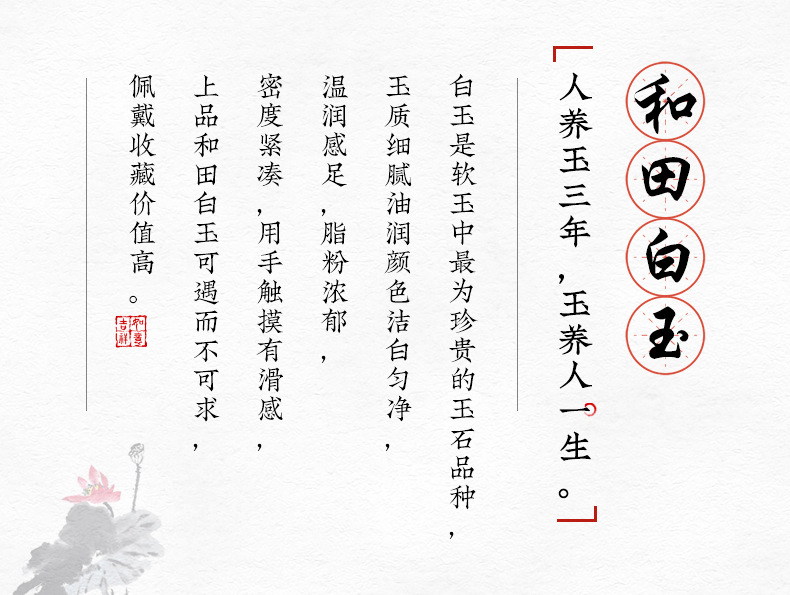 和田白玉
人养玉三年，玉养人一生。
白玉是软玉中最为珍贵的玉石品种，
玉质细腻油润颜色洁白匀净，
温润感足，脂粉浓郁，
密度紧凑，用手触摸有滑感，
上品和田白玉可遇而不可求，
佩戴收藏价值高。
如意
吉祥